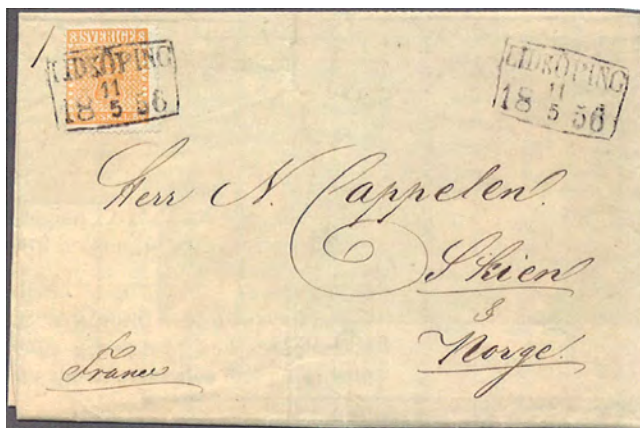 SVERIGE
LIDKÖPING
11
18 5 56
LIDKÖPING
11
18 5 56
Herr N. Cappelen.
Skien
Norge.
Franco